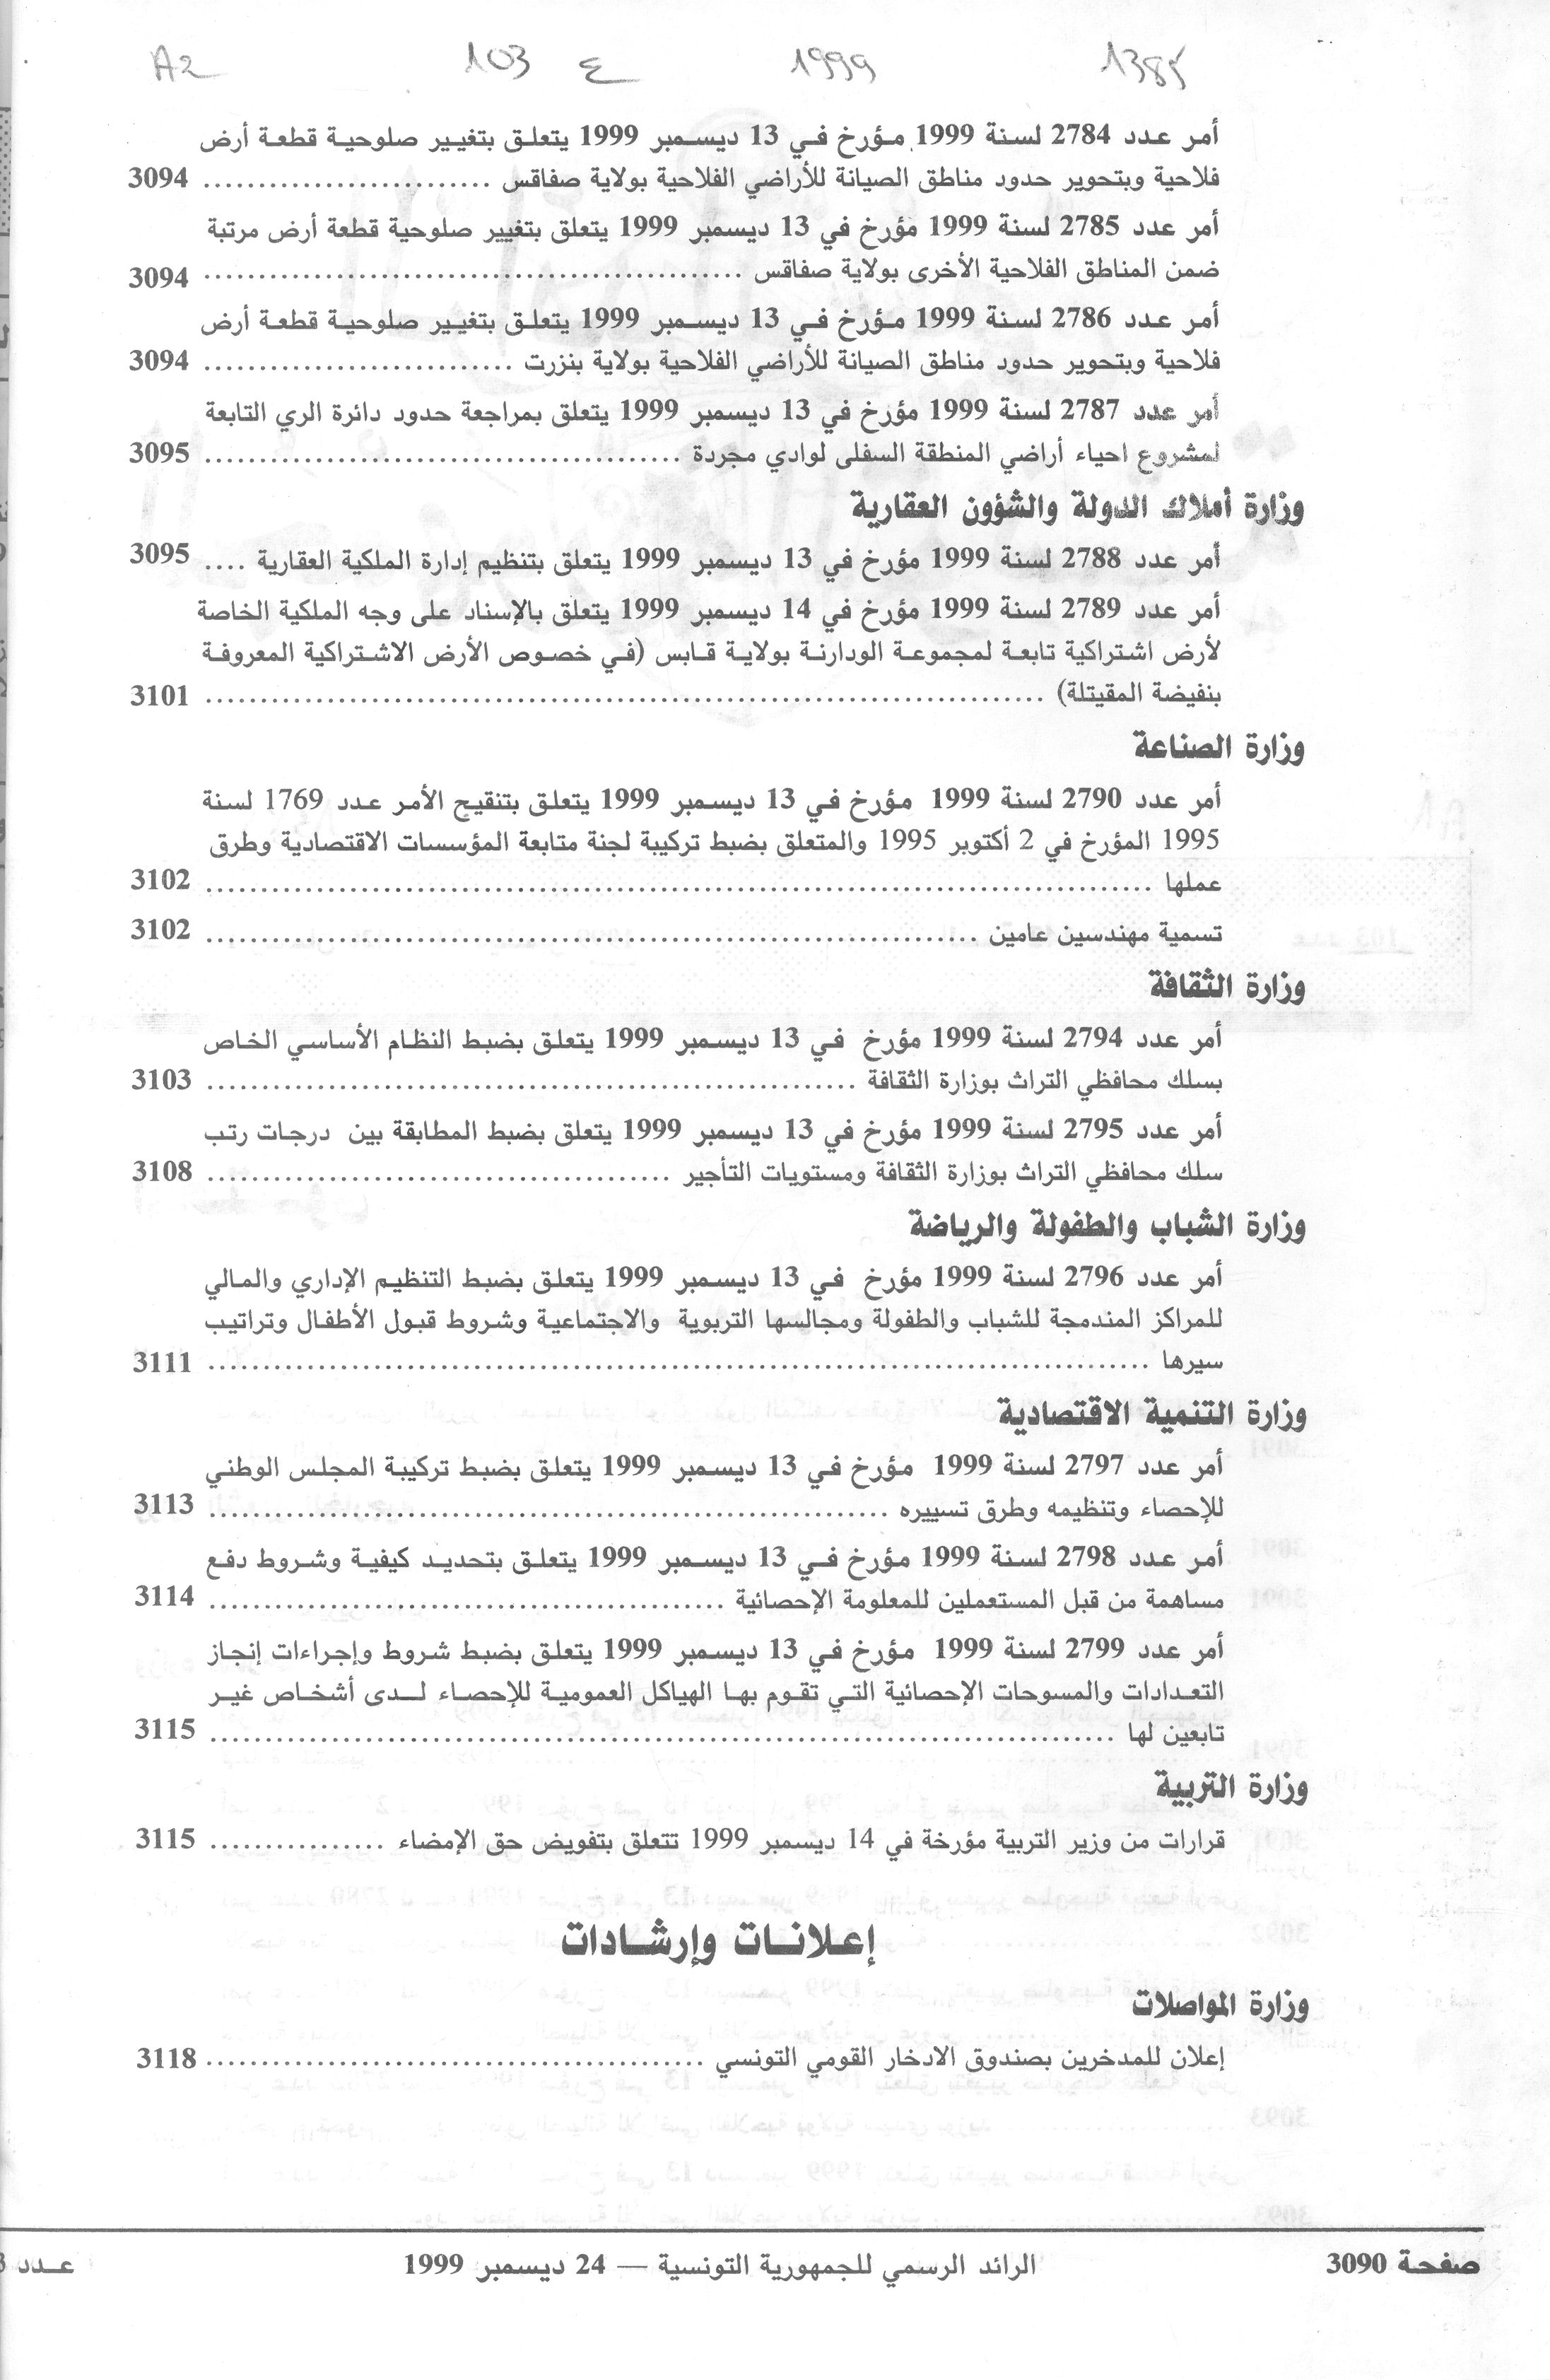 A2 103 ع 1999 1385
أمر عدد 2784 لسنة 1999 مؤرخ في 13 ديسمبر 1999 يتعلق بتغيير صلوحية قطعة أرض
فلاحية وبتحوير حدود مناطق الصيانة للأراضي الفلاحية بولاية صفاقس ........................ 3094
أمر عدد 2785 لسنة 1999 مؤرخ في 13 ديسمبر 1999 يتعلق بتغيير صلوحية قطعة أرض مرتبة
ضمن المناطق الفلاحية الأخرى بولاية صفاقس ........................ 3094
أمر عدد 2786 لسنة 1999 مؤرخ في 13 ديسمبر 1999 يتعلق بتغيير صلوحية قطعة أرض
فلاحية وبتحوير حدود مناطق الصيانة للأراضي الفلاحية بولاية بنزرت ........................ 3094
أمر عدد 2787 لسنة 1999 مؤرخ في 13 ديسمبر 1999 يتعلق بمراجعة حدود دائرة الري التابعة
لمشروع احياء أراضي المنطقة السفلى لوادي مجردة ........................ 3095
وزارة أملاك الدولة والشؤون العقارية
أمر عدد 2788 لسنة 1999 مؤرخ في 13 ديسمبر 1999 يتعلق بتنظيم إدارة الملكية العقارية .... 3095
أمر عدد 2789 لسنة 1999 مؤرخ في 14 ديسمبر 1999 يتعلق بالإسناد على وجه الملكية الخاصة
لأرض اشتراكية تابعة لمجموعة الودارنة بولاية قابس (في خصوص الأرض الاشتراكية المعروفة
بنفيضة المقيتلة) ........................ 3101
وزارة الصناعة
أمر عدد 2790 لسنة 1999 مؤرخ في 13 ديسمبر 1999 يتعلق بتنقيح الأمر عدد 1769 لسنة
1995 المؤرخ في 2 أكتوبر 1995 والمتعلق بضبط تركيبة لجنة متابعة المؤسسات الاقتصادية وطرق
عملها ........................ 3102
تسمية مهندسين عامين ........................ 3102
وزارة الثقافة
أمر عدد 2794 لسنة 1999 مؤرخ في 13 ديسمبر 1999 يتعلق بضبط النظام الأساسي الخاص
بسلك محافظي التراث بوزارة الثقافة ........................ 3103
أمر عدد 2795 لسنة 1999 مؤرخ في 13 ديسمبر 1999 يتعلق بضبط المطابقة بين درجات رتب
سلك محافظي التراث بوزارة الثقافة ومستويات التأجير ........................ 3108
وزارة الشباب والطفولة والرياضة
أمر عدد 2796 لسنة 1999 مؤرخ في 13 ديسمبر 1999 يتعلق بضبط التنظيم الإداري والمالي
للمراكز المندمجة للشباب والطفولة ومجالسها التربوية والاجتماعية وشروط قبول الأطفال وتراتيب
سيرها ........................ 3111
وزارة التنمية الاقتصادية
أمر عدد 2797 لسنة 1999 مؤرخ في 13 ديسمبر 1999 يتعلق بضبط تركيبة المجلس الوطني
للإحصاء وتنظيمه وطرق تسييره ........................ 3113
أمر عدد 2798 لسنة 1999 مؤرخ في 13 ديسمبر 1999 يتعلق بتحديد كيفية وشروط دفع
مساهمة من قبل المستعملين للمعلومة الإحصائية ........................ 3114
أمر عدد 2799 لسنة 1999 مؤرخ في 13 ديسمبر 1999 يتعلق بضبط شروط وإجراءات إنجاز
التعدادات والمسوحات الإحصائية التي تقوم بها الهياكل العمومية للإحصاء لدى أشخاص غير
تابعين لها ........................ 3115
وزارة التربية
قرارات من وزير التربية مؤرخة في 14 ديسمبر 1999 تتعلق بتفويض حق الإمضاء ................ 3115
إعلانات وإرشادات
وزارة المواصلات
إعلان للمدخرين بصندوق الادخار القومي التونسي ........................ 3118
صفحة 3090 الرائد الرسمي للجمهورية التونسية — 24 ديسمبر 1999 عدد